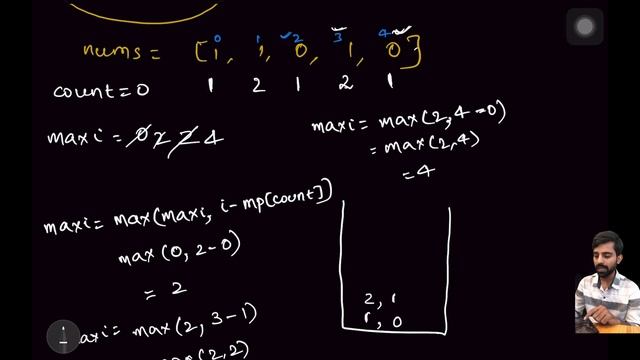 0 1 2 3 4
nums = [1, 1, 0, 1, 0]
count = 0 1 2 1 2 1
maxi = 0 2 2 4
maxi = max(2, 4-0)
= max(2,4)
= 4
maxi = max(maxi, i-mp[count])
max(0, 2-0)
= 2
2, 1
1, 0
maxi = max(2, 3-1)
max(2,2)